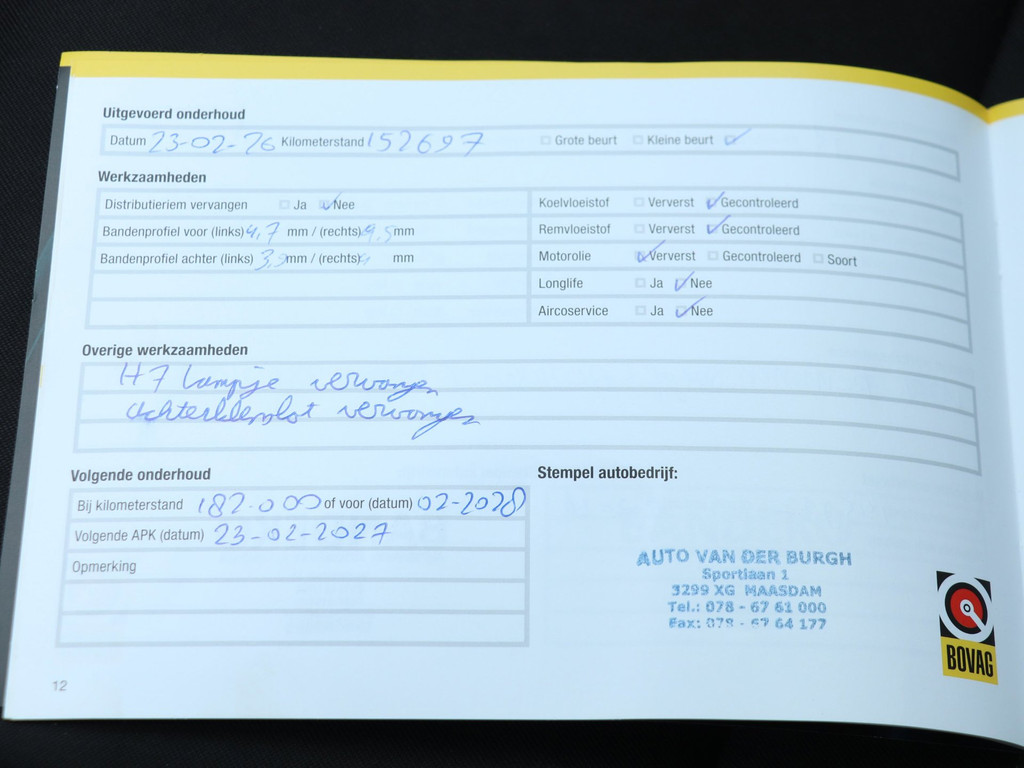 Uitgevoerd onderhoud
Datum 23-02-26 Kilometerstand 152697 Grote beurt Kleine beurt
Werkzaamheden
Distributieriem vervangen Ja Nee
Bandenprofiel voor (links) 4,7 mm / (rechts) 4,5 mm
Bandenprofiel achter (links) mm / (rechts) mm
Koelvloeistof Ververst Gecontroleerd
Remvloeistof Ververst Gecontroleerd
Motorolie Ververst Gecontroleerd Soort
Longlife Ja Nee
Aircoservice Ja Nee
Overige werkzaamheden
H7 lampje vervangen
vervangen
Volgende onderhoud
Bij kilometerstand 182.000 of voor (datum) 02-2028
Volgende APK (datum) 23-02-2027
Opmerking
Stempel autobedrijf:
AUTO VAN DER BURGH
Sportlaan 1
3299 XG MAASDAM
Tel.: 078 - 67 61 000
Fax: 078 - 67 64 177
BOVAG
12